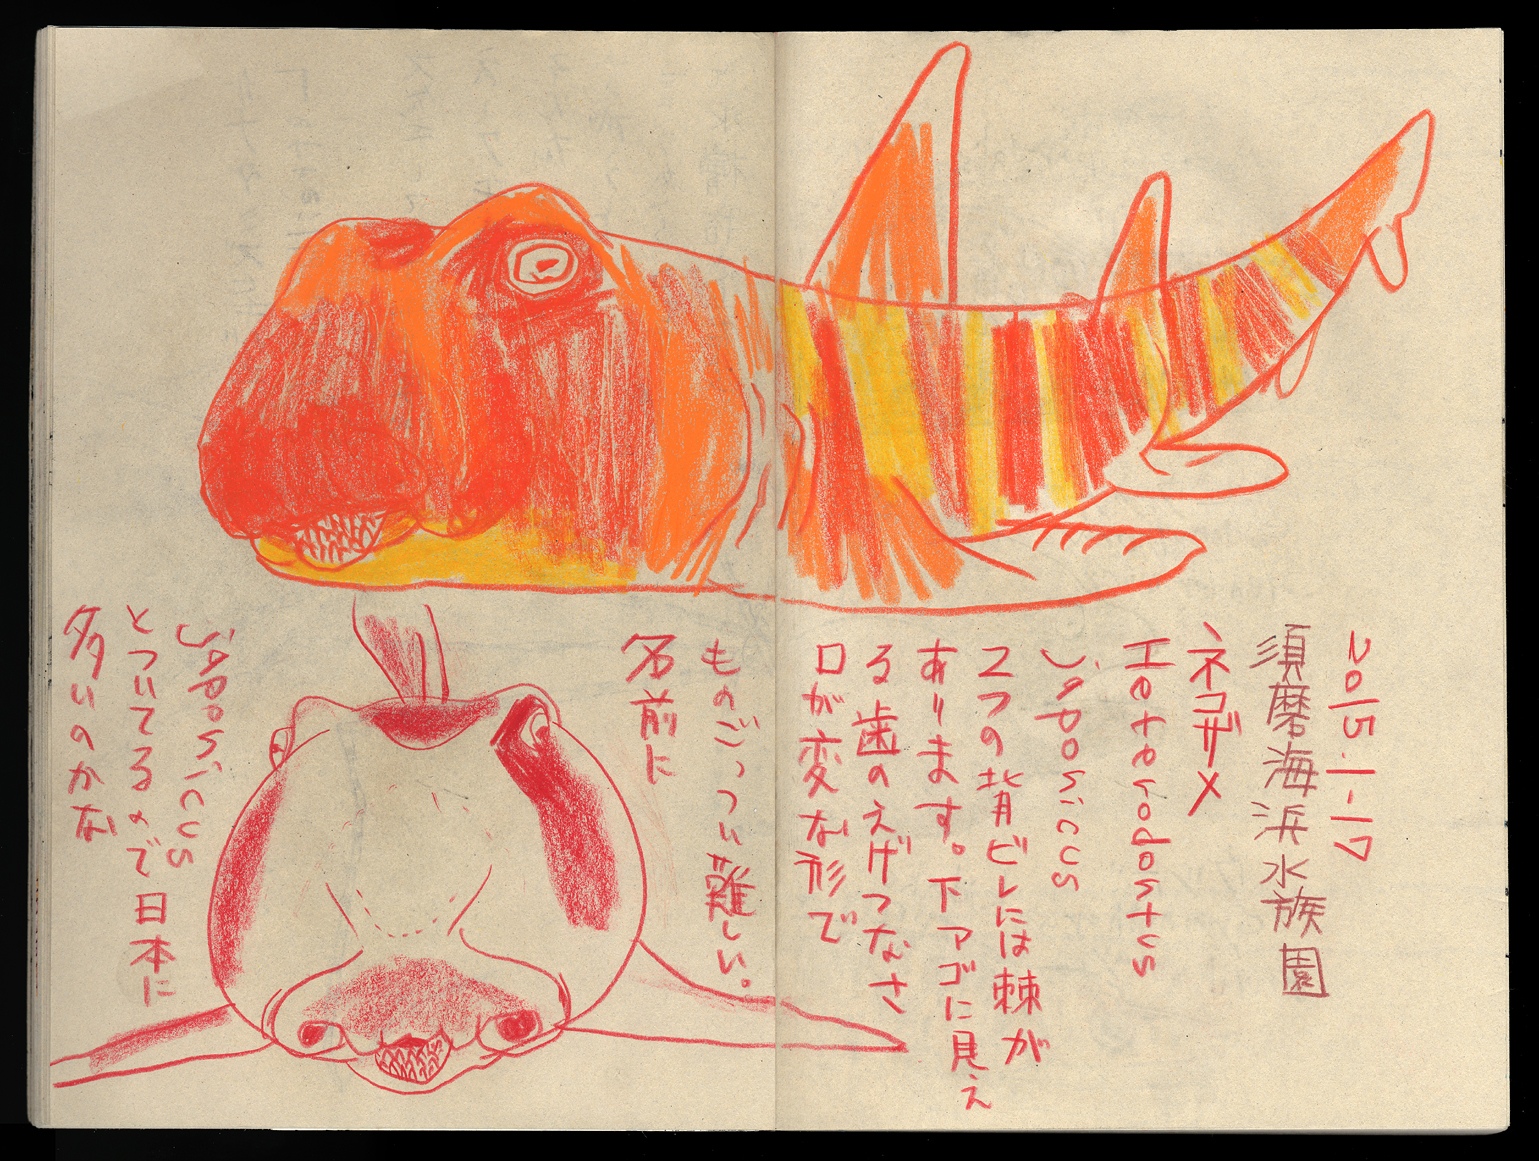 2015.1-17
須磨海浜水族園
ネコザメ
Heterodontus
japonicus
2つの背ビレには棘が
あります。下アゴに見え
る歯のえげつなさ
口が変な形で
ものごっつい難しい。
名前に
japonicus
とついてるので日本に
多いのかな